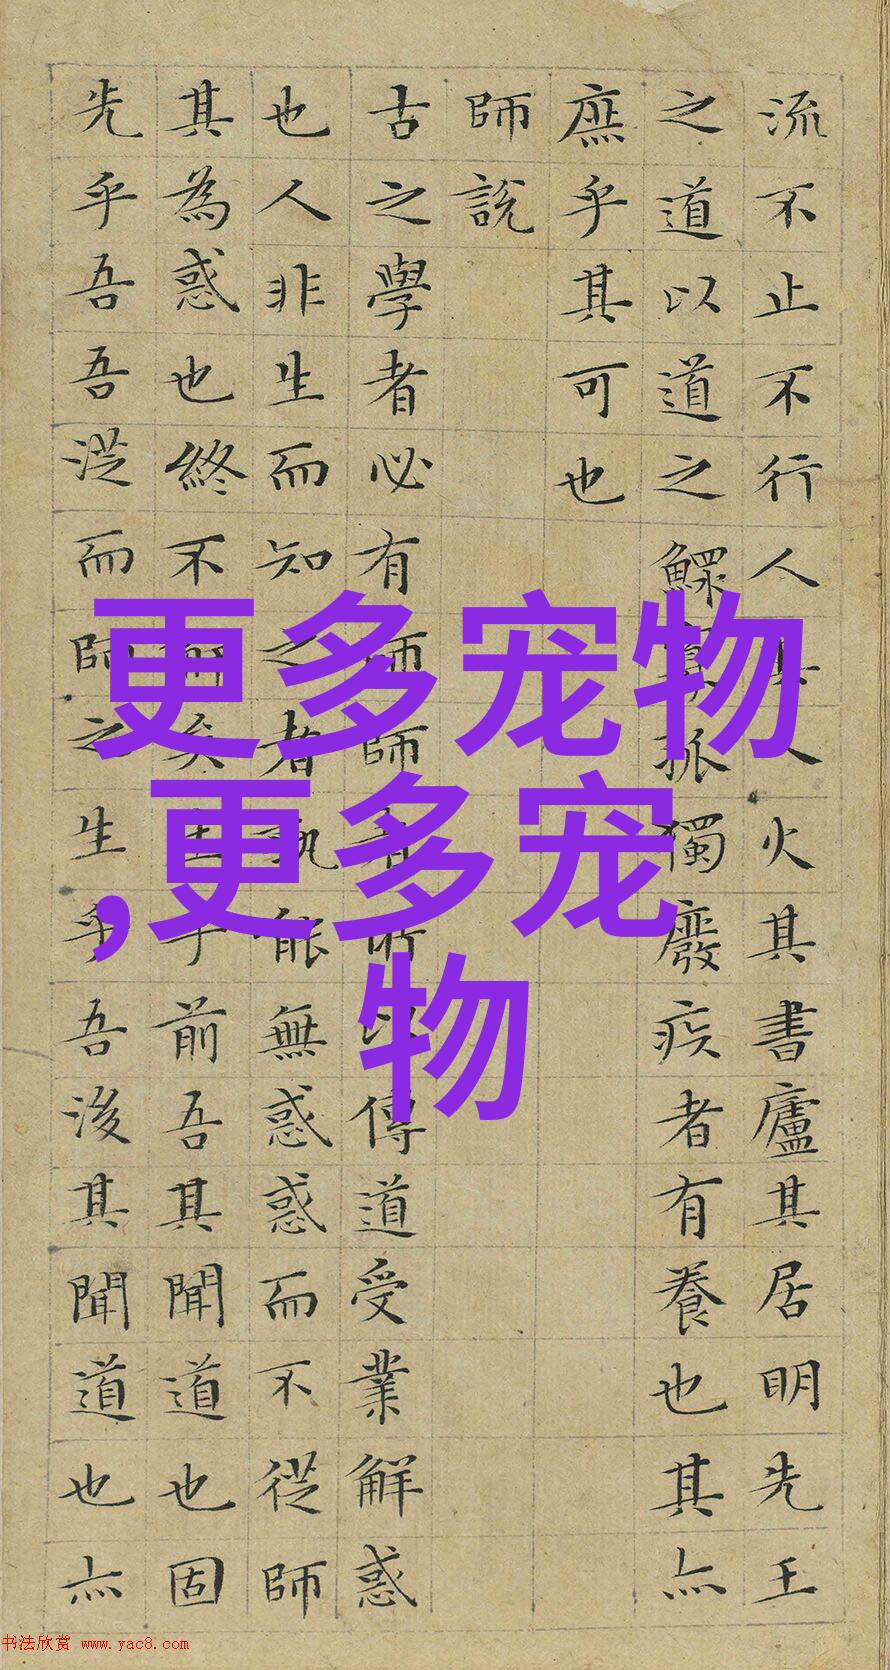 流不止不行人其人火其書廬其居明先王
之道以道之鰥寡孤獨廢疾者有養也其亦
庶乎其可也
師說
古之學者必有師師者所以傳道受業解惑
也人非生而知之者孰能無惑惑而不從師
其為惑也終不解矣生乎前吾其聞道也固
先乎吾吾從而師之生乎吾後其聞道也亦
更多宠物
,更多宠
物
书法欣赏 www.yac8.com